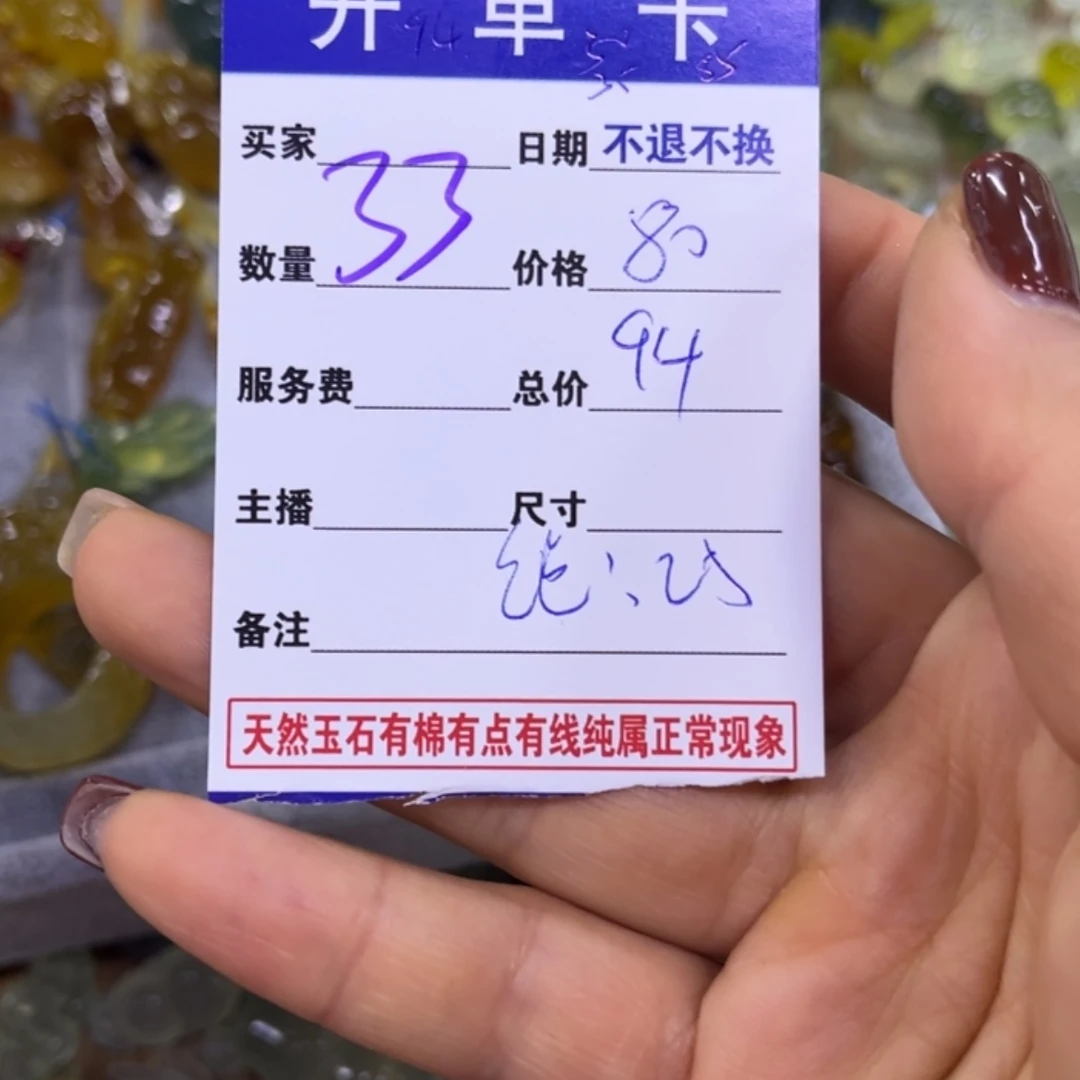 开单卡
94
买家 日期 不退不换
数量 33 价格 80
服务费 总价 94
主播 尺寸
备注
天然玉石有棉有点有线纯属正常现象